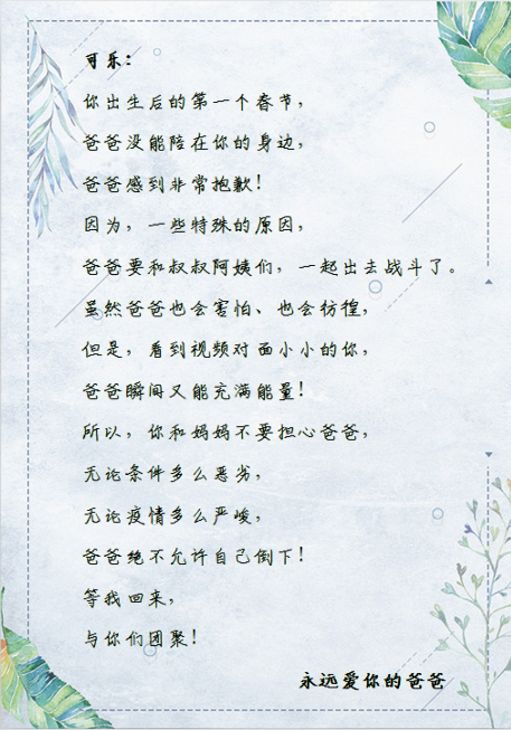 可乐：
你出生后的第一个春节，
爸爸没能陪在你的身边，
爸爸感到非常抱歉！
因为，一些特殊的原因，
爸爸要和叔叔阿姨们，一起出去战斗了。
虽然爸爸也会害怕、也会彷徨，
但是，看到视频对面小小的你，
爸爸瞬间又能充满能量！
所以，你和妈妈不要担心爸爸，
无论条件多么恶劣，
无论疫情多么严峻，
爸爸绝不允许自己倒下！
等我回来，
与你们团聚！
永远爱你的爸爸